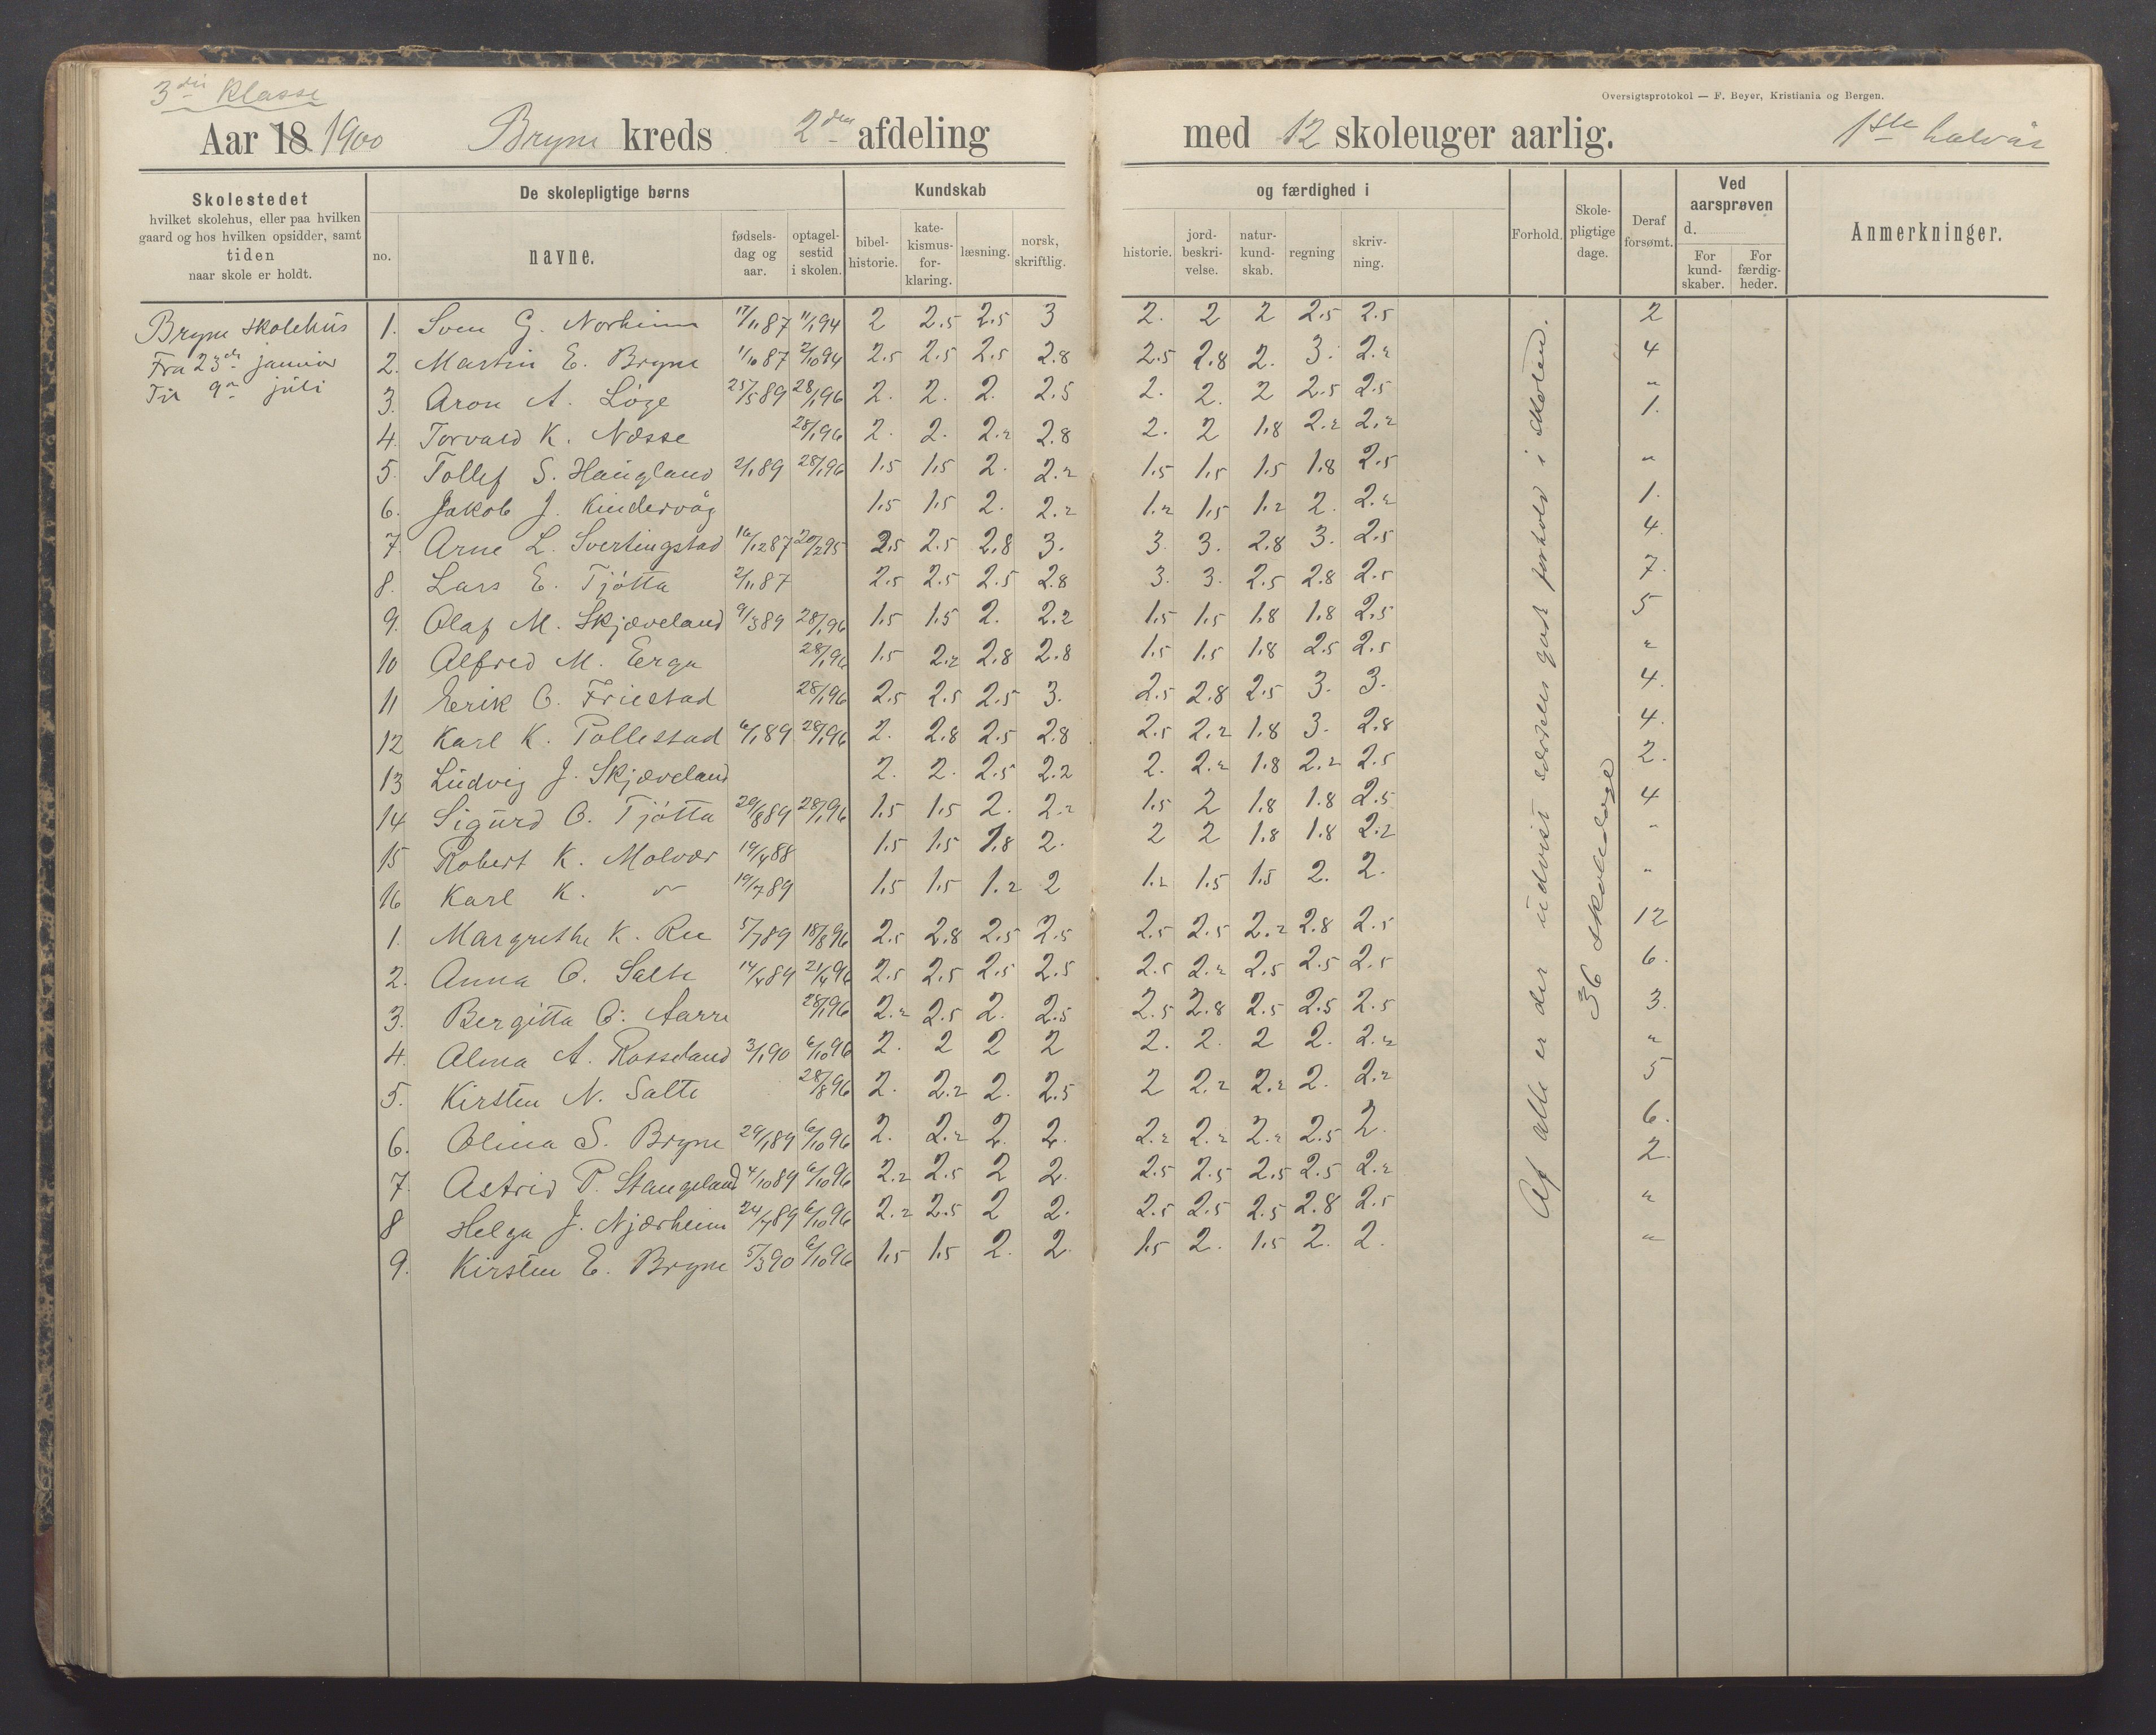 3die Klasse
Oversigtsprotokol — F. Beyer, Kristiania og Bergen.
Aar 18 1900 Bryne kreds 2den afdeling med 12 skoleuger aarlig. 1ste halvår
Skolestedet
hvilket skolehus, eller paa hvilken
gaard og hos hvilken opsidder, samt
tiden
naar skole er holdt.
De skolepligtige børns
no.
navne.
fødsels-
dag og
aar.
optagel-
sestid
i skolen.
Kundskab
bibel-
historie.
kate-
kismus-
for-
klaring.
læsning.
norsk,
skriftlig.
og færdighed i
historie.
jord-
beskri-
velse.
natur-
kund-
skab.
regning
skriv-
ning.
Forhold.
Skole-
pligtige
dage.
Deraf
forsømt.
Ved
aarsprøven
d.
For
kund-
skaber.
For
færdig-
heder.
Anmerkninger.
Bryne skolehus
Fra 23de januar
Til 9de juli
1. Sven G. Norheim 17/11 87 11/1 94 2 2.5 2.5 3 2. 2 2 2.5 2.5 2
2. Martin E. Bryne 1/10 87 2/10 94 2.5 2.5 2.5 2.8 2.5 2.8 2. 3. 2.2 4
3. Aron A. Löge 25/5 89 28/1 96 2. 2. 2. 2.5 2. 2. 2 2.5 2.5 "
4. Torvald K. Næsse 28/1 96 2. 2. 2.2 2.8 2. 2 1.8 2.2 2.2 1.
5. Tollef S. Haugland 2/1 89 28/1 96 1.5 1.5 2. 2.2 1.5 1.5 1.5 1.8 2.5 "
6. Jakob J. Kindervåg 1.5 1.5 2. 2.2 1.2 1.5 1.2 2. 2.2 1.
7. Arne L. Svertingstad 16/12 87 20/2 95 2.5 2.5 2.8 3. 3. 3. 2.8 3. 2.5 4.
8. Lars E. Tjötta 2/11 87 2.5 2.5 2.5 2.8 3. 3. 2.5 2.8 2.5 7.
9. Olaf M. Skjæveland 9/3 89 28/1 96 1.5 1.5 2. 2.2 1.5 1.5 1.8 1.8 2.5 5
10 Alfred M. Erga 28/1 96 1.5 2.2 2.8 2.8 1.5 1.5 1.8 2.5 2.5 "
11 Eerik O. Friestad 28/1 96 2.5 2.5 2.5 3. 2.5 2.8 2.5 3. 3. 4.
12 Karl K. Pollestad 6/1 89 28/1 96 2. 2.8 2.5 2.8 2.5 2.2 1.8 3. 2.8 4.
13 Ludvig J. Skjæveland 2. 2. 2.5 2.2 2. 2.2 1.8 2.2 2.5 2.
14 Sigurd O. Tjötta 29/8 89 28/1 96 1.5 1.5 2. 2.2 1.5 2 1.8 1.8 2.5 4
15 Robert K. Molvær 19/4 88 1.5 1.5 1.8 2. 2 2 1.8 1.8 2.2 "
16 Karl K. " 19/7 89 1.5 1.5 1.2 2 1.2 1.5 1.5 2. 2. "
1. Margrethe K. Ree 5/7 89 18/8 96 2.5 2.8 2.5 2.5 2.5 2.5 2.2 2.8 2.5 12
2. Anna O. Salte 14/4 89 21/4 96 2.5 2.5 2.5 2.5 2.5 2.2 2.5 2.5 2.5 6.
3. Bergitta O. Aarre 28/1 96 2.2 2.5 2. 2.5 2.5 2.8 2.5 2.5 2.5 3.
4. Alma A. Rosseland 3/1 90 6/10 96 2. 2 2 2 2. 2. 2 2. 2.2 "
5. Kirsten N. Salte 28/8 96 2. 2.2 2. 2.5 2 2.2 2.2 2. 2.2 5
6. Olina S. Bryne 29/1 89 6/10 96 2. 2.2 2. 2. 2.2 2.2 2.2 2.5 2. 6.
7. Astrid P. Stangeland 4/10 89 6/10 96 2.2 2.5 2 2. 2.5 2.5 2.5 2.5 2.2 2.
8 Helga J. Njærheim 24/7 89 6/10 96 2.2 2.5 2 2. 2.5 2.5 2.5 2.8 2.5 "
9. Kirsten E. Bryne 5/3 90 6/10 96 1.5 1.5 2. 2. 1.5 2. 1.5 2. 2. "
Af alle er der udvist særdeles godt forhold i skolen.
36 skoledage